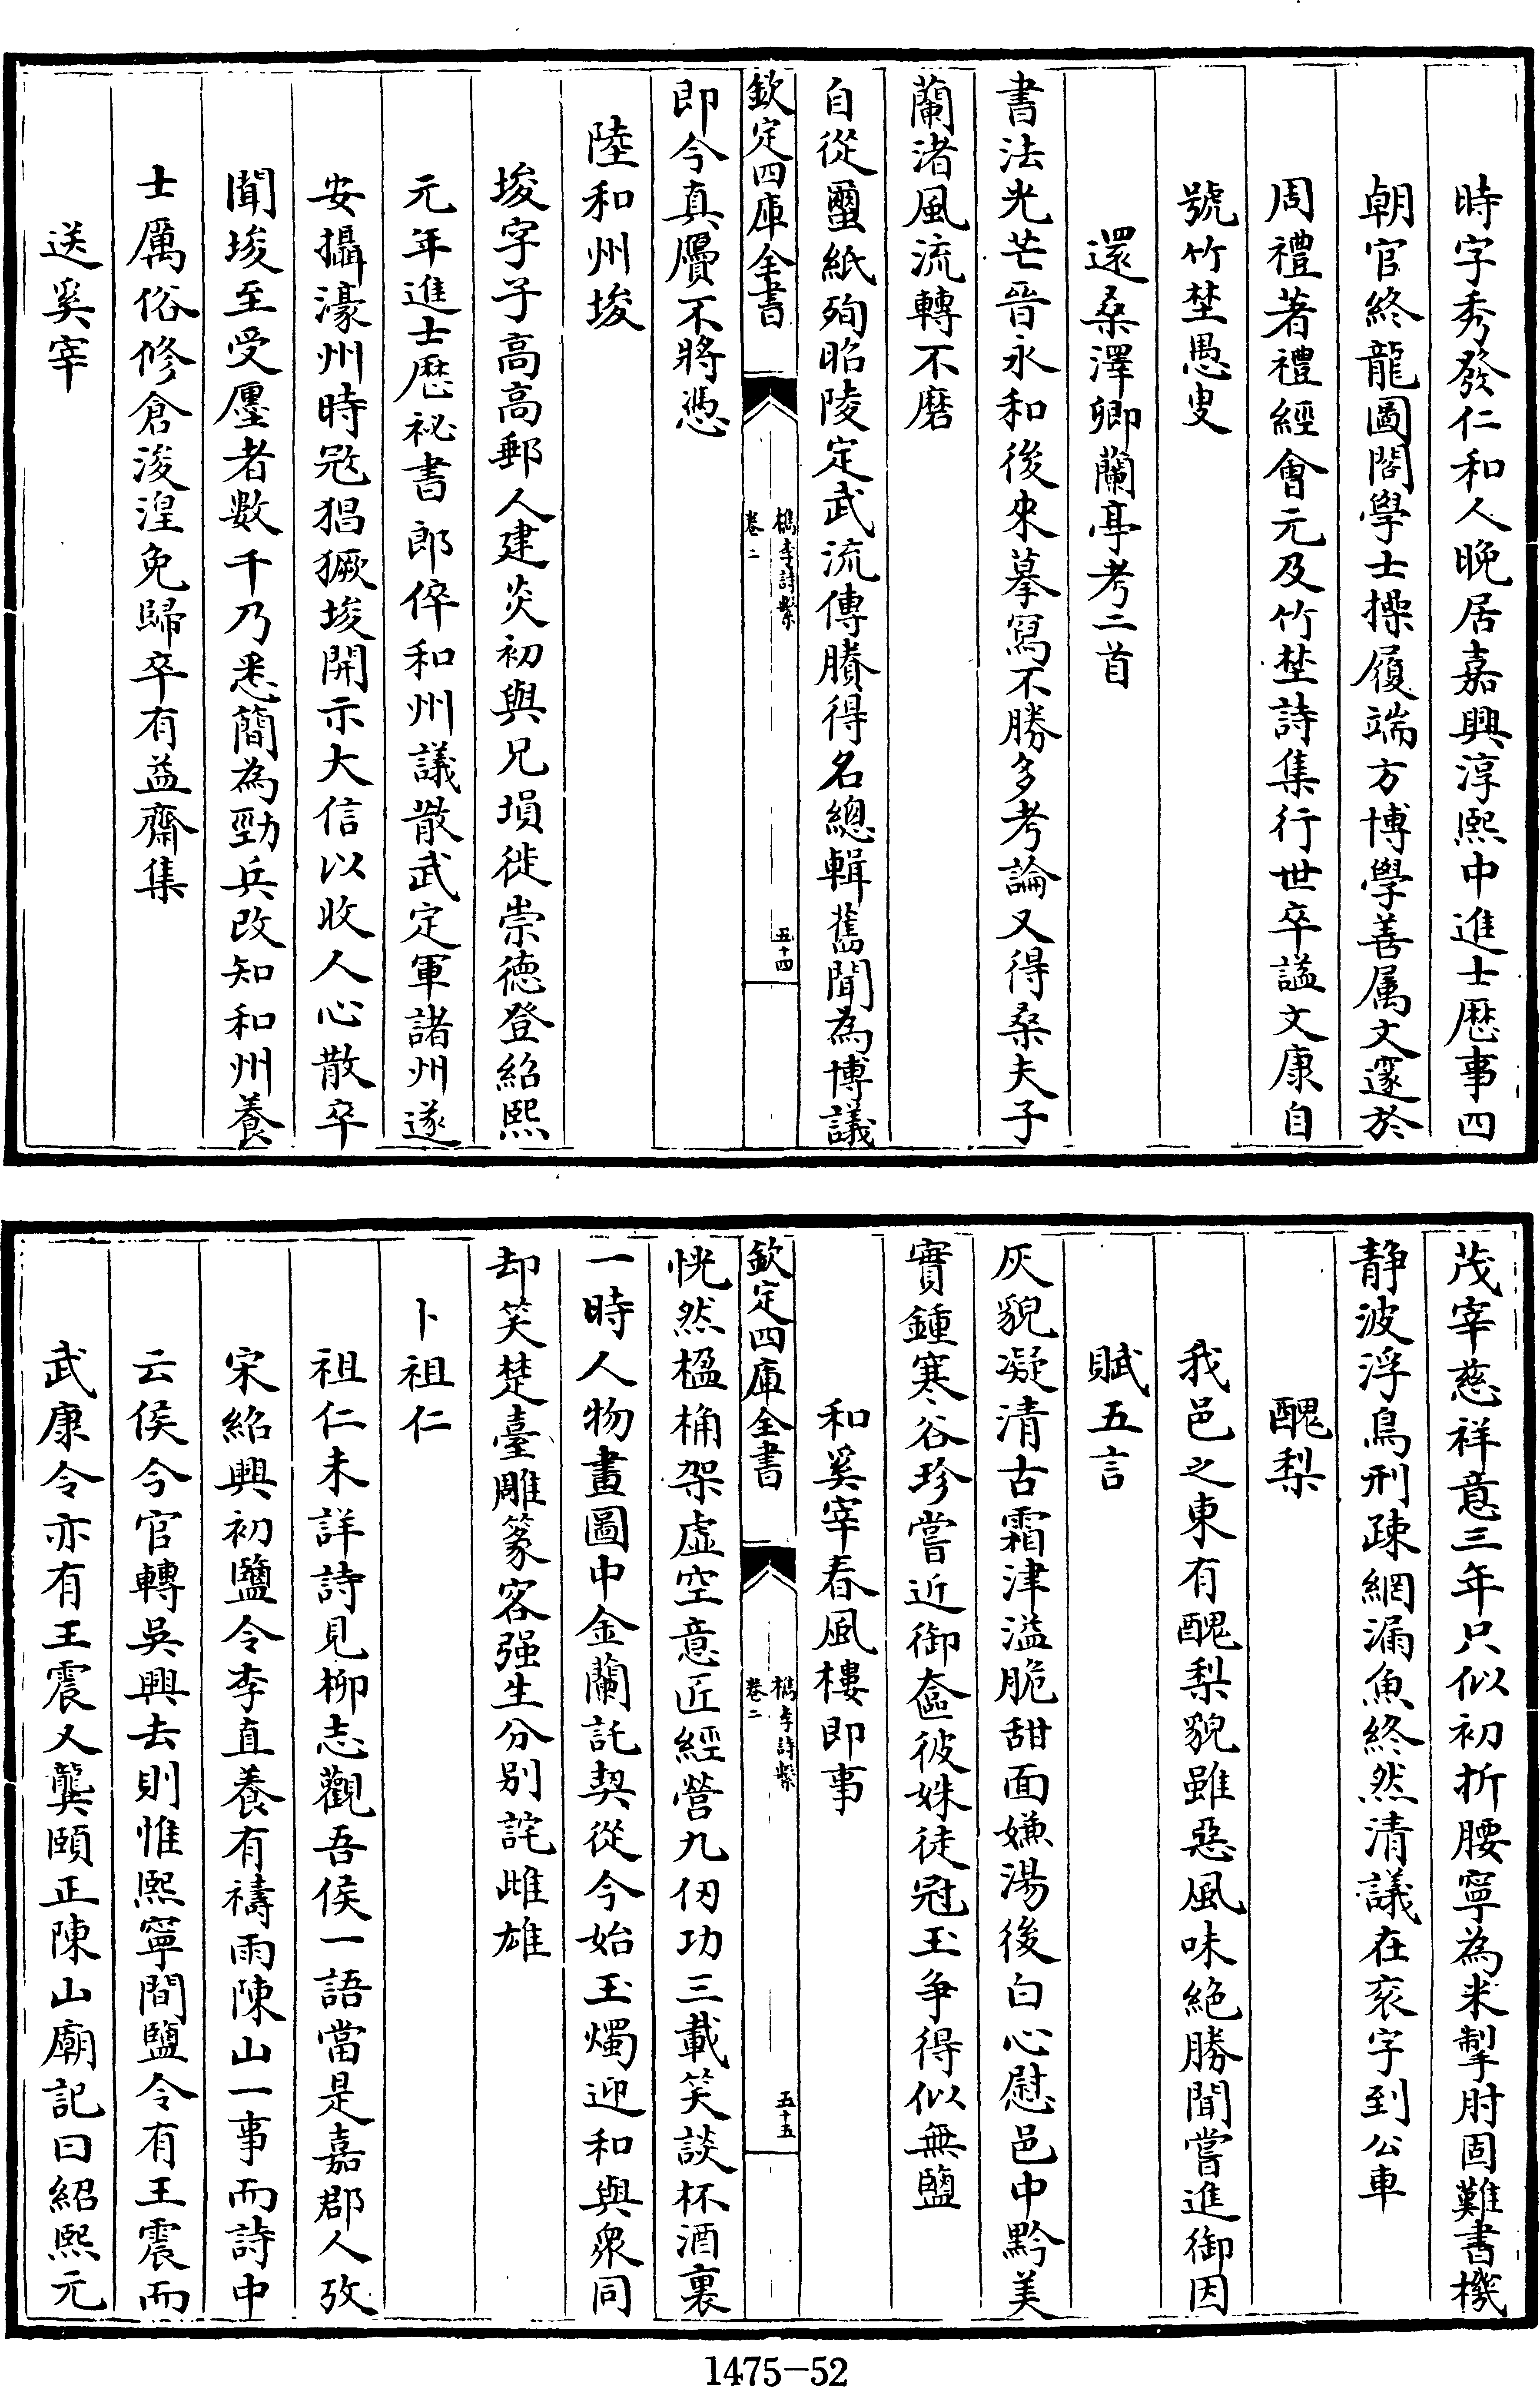 時字秀發仁和人晚居嘉興淳熙中進士歴事四
朝官終龍圖閣學士操履端方博學善属文邃於
周禮著禮經會元及竹埜詩集行世卒謚文康自
號竹埜愚叟
還桑澤卿蘭亭考二首
書法光芒晉永和後來摹寫不勝多考論又得桑夫子
蘭渚風流轉不磨
自從璽紙殉昭陵定武流傳賸得名總輯舊聞為博議
欽定四庫全書
檇李詩繫
卷二
五十四
即今真贗不將憑
陸和州埈
埈字子高高郵人建炎初與兄埙徙崇德登紹熙
元年進士歴祕書郎倅和州議散武定軍諸州遂
安攝濠州時冦猖獗埈開示大信以收人心散卒
聞埈至受廛者數千乃悉簡為勁兵改知和州養
士厲俗修倉浚湟免歸卒有益齋集
送奚宰
茂宰慈祥意三年只似初折腰寧為米掣肘固難書機
静波浮鳥刑疎網漏魚終然清議在衮字到公車
醜梨
我邑之東有醜梨貌雖惡風味絶勝聞嘗進御因
賦五言
灰貌凝清古霜津溢脆甜面嫌湯後白心慰邑中黔美
實鍾寒谷珍嘗近御奩彼姝徒冠玉争得似無鹽
和奚宰春風樓即事
欽定四庫全書
檇李詩繫
卷二
五十五
恍然楹桷架虚空意匠經營九仞功三載笑談杯酒裏
一時人物畫圖中金蘭託契從今始玉燭迎和與衆同
却笑楚臺雕篆客强生分别詫雌雄
卜祖仁
祖仁未詳詩見柳志觀吾侯一語當是嘉郡人攷
宋紹興初鹽令李直養有禱雨陳山一事而詩中
云侯今官轉吳興去則惟熙寧間鹽令有王震而
武康令亦有王震又龔頤正陳山廟記曰紹熙元
1475-52